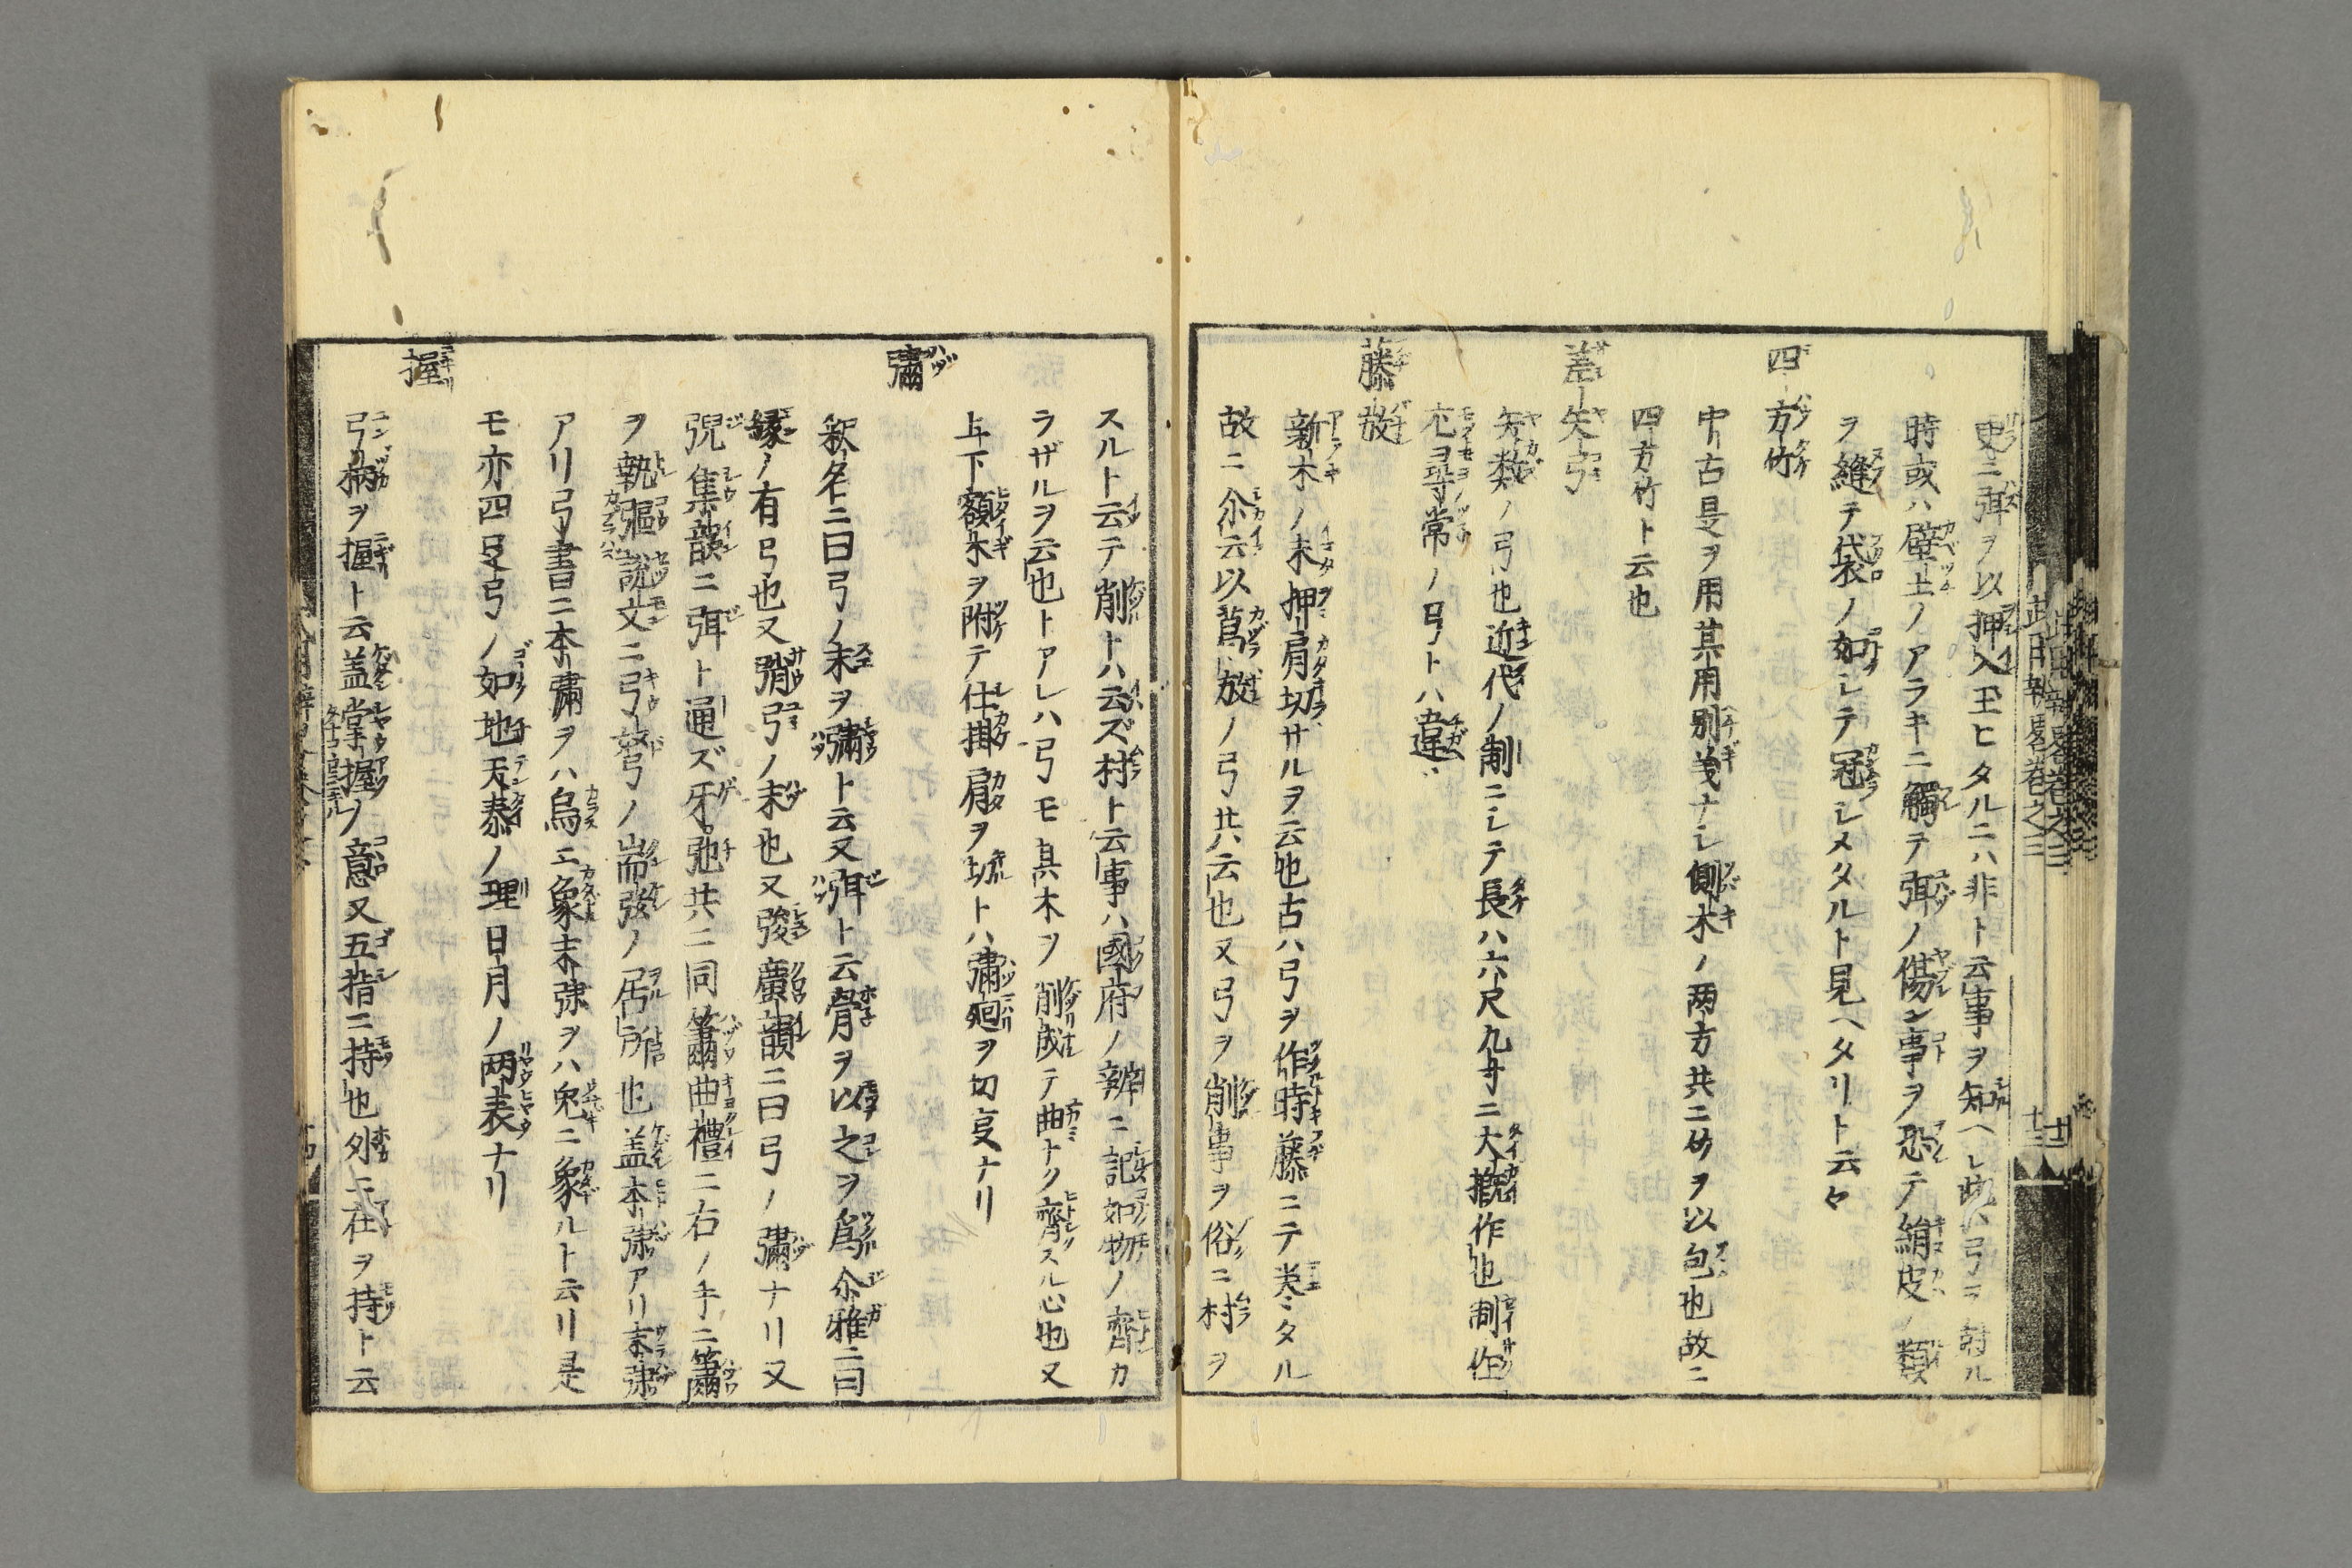 更ニ弭ヲ以押入玉ヒタルニハ非ト云事ヲ知ヘシ此ハ弓ヲ射ル
時或ハ壁土ノアラキニ觸テ弭ノ傷ン事ヲ恐テ絹皮ノ類
ヲ縫テ袋ノ如シテ冠シメタルト見ヘタリト云々
四方竹
中古是ヲ用其用別義ナシ側木ノ两方共ニ竹ヲ以包也故ニ
四方竹ト云也
差矢弓
矢数ノ弓也近代ノ制ニシテ長ハ六尺九寸ニ大概作也制作
尤ヨ尋常ノ弓トハ違
藤放
新木ノ未押肩切サルヲ云也古ハ弓ヲ作時藤ニテ巻ミタル
故ニ尒云以葛放ノ弓共云也又弓ヲ削事ヲ俗ニ村ヲ
スルト云テ削トハ云ズ村ト云事ハ國府ノ辨ニ記如物ノ齊カ
ラザルヲ云也トアレハ弓モ其木ヲ削成テ曲トク齊スル心也又
上下額木ヲ附テ仕掛肩ヲ切トハ彇廻ヲ切叓ナリ
彇
釈名ニ曰弓ノ末ヲ彇ト云又弭ト云骨ヲ以之ヲ爲尒雅ニ曰
縁ノ有弓也又弰弓ノ末也又㢸廣韻ニ曰弓ノ彇ナリ又
弬集韻ニ弭ト通ズ牙弛共ニ同簫曲禮ニ右ノ手ニ簫
ヲ執彄説文ニ弓弩ノ耑弦ノ居所也盖本弭アリ末弭
アリ弓書ニ本彇ヲハ烏ニ象末弭ヲハ兔ニ象ルト云リ是
モ亦四足弓ノ如地天泰ノ理日月ノ两表ナリ
握
弓柄ヲ握ト云盖掌握ノ意又五指ニ持也外ニ在ヲ持ト云